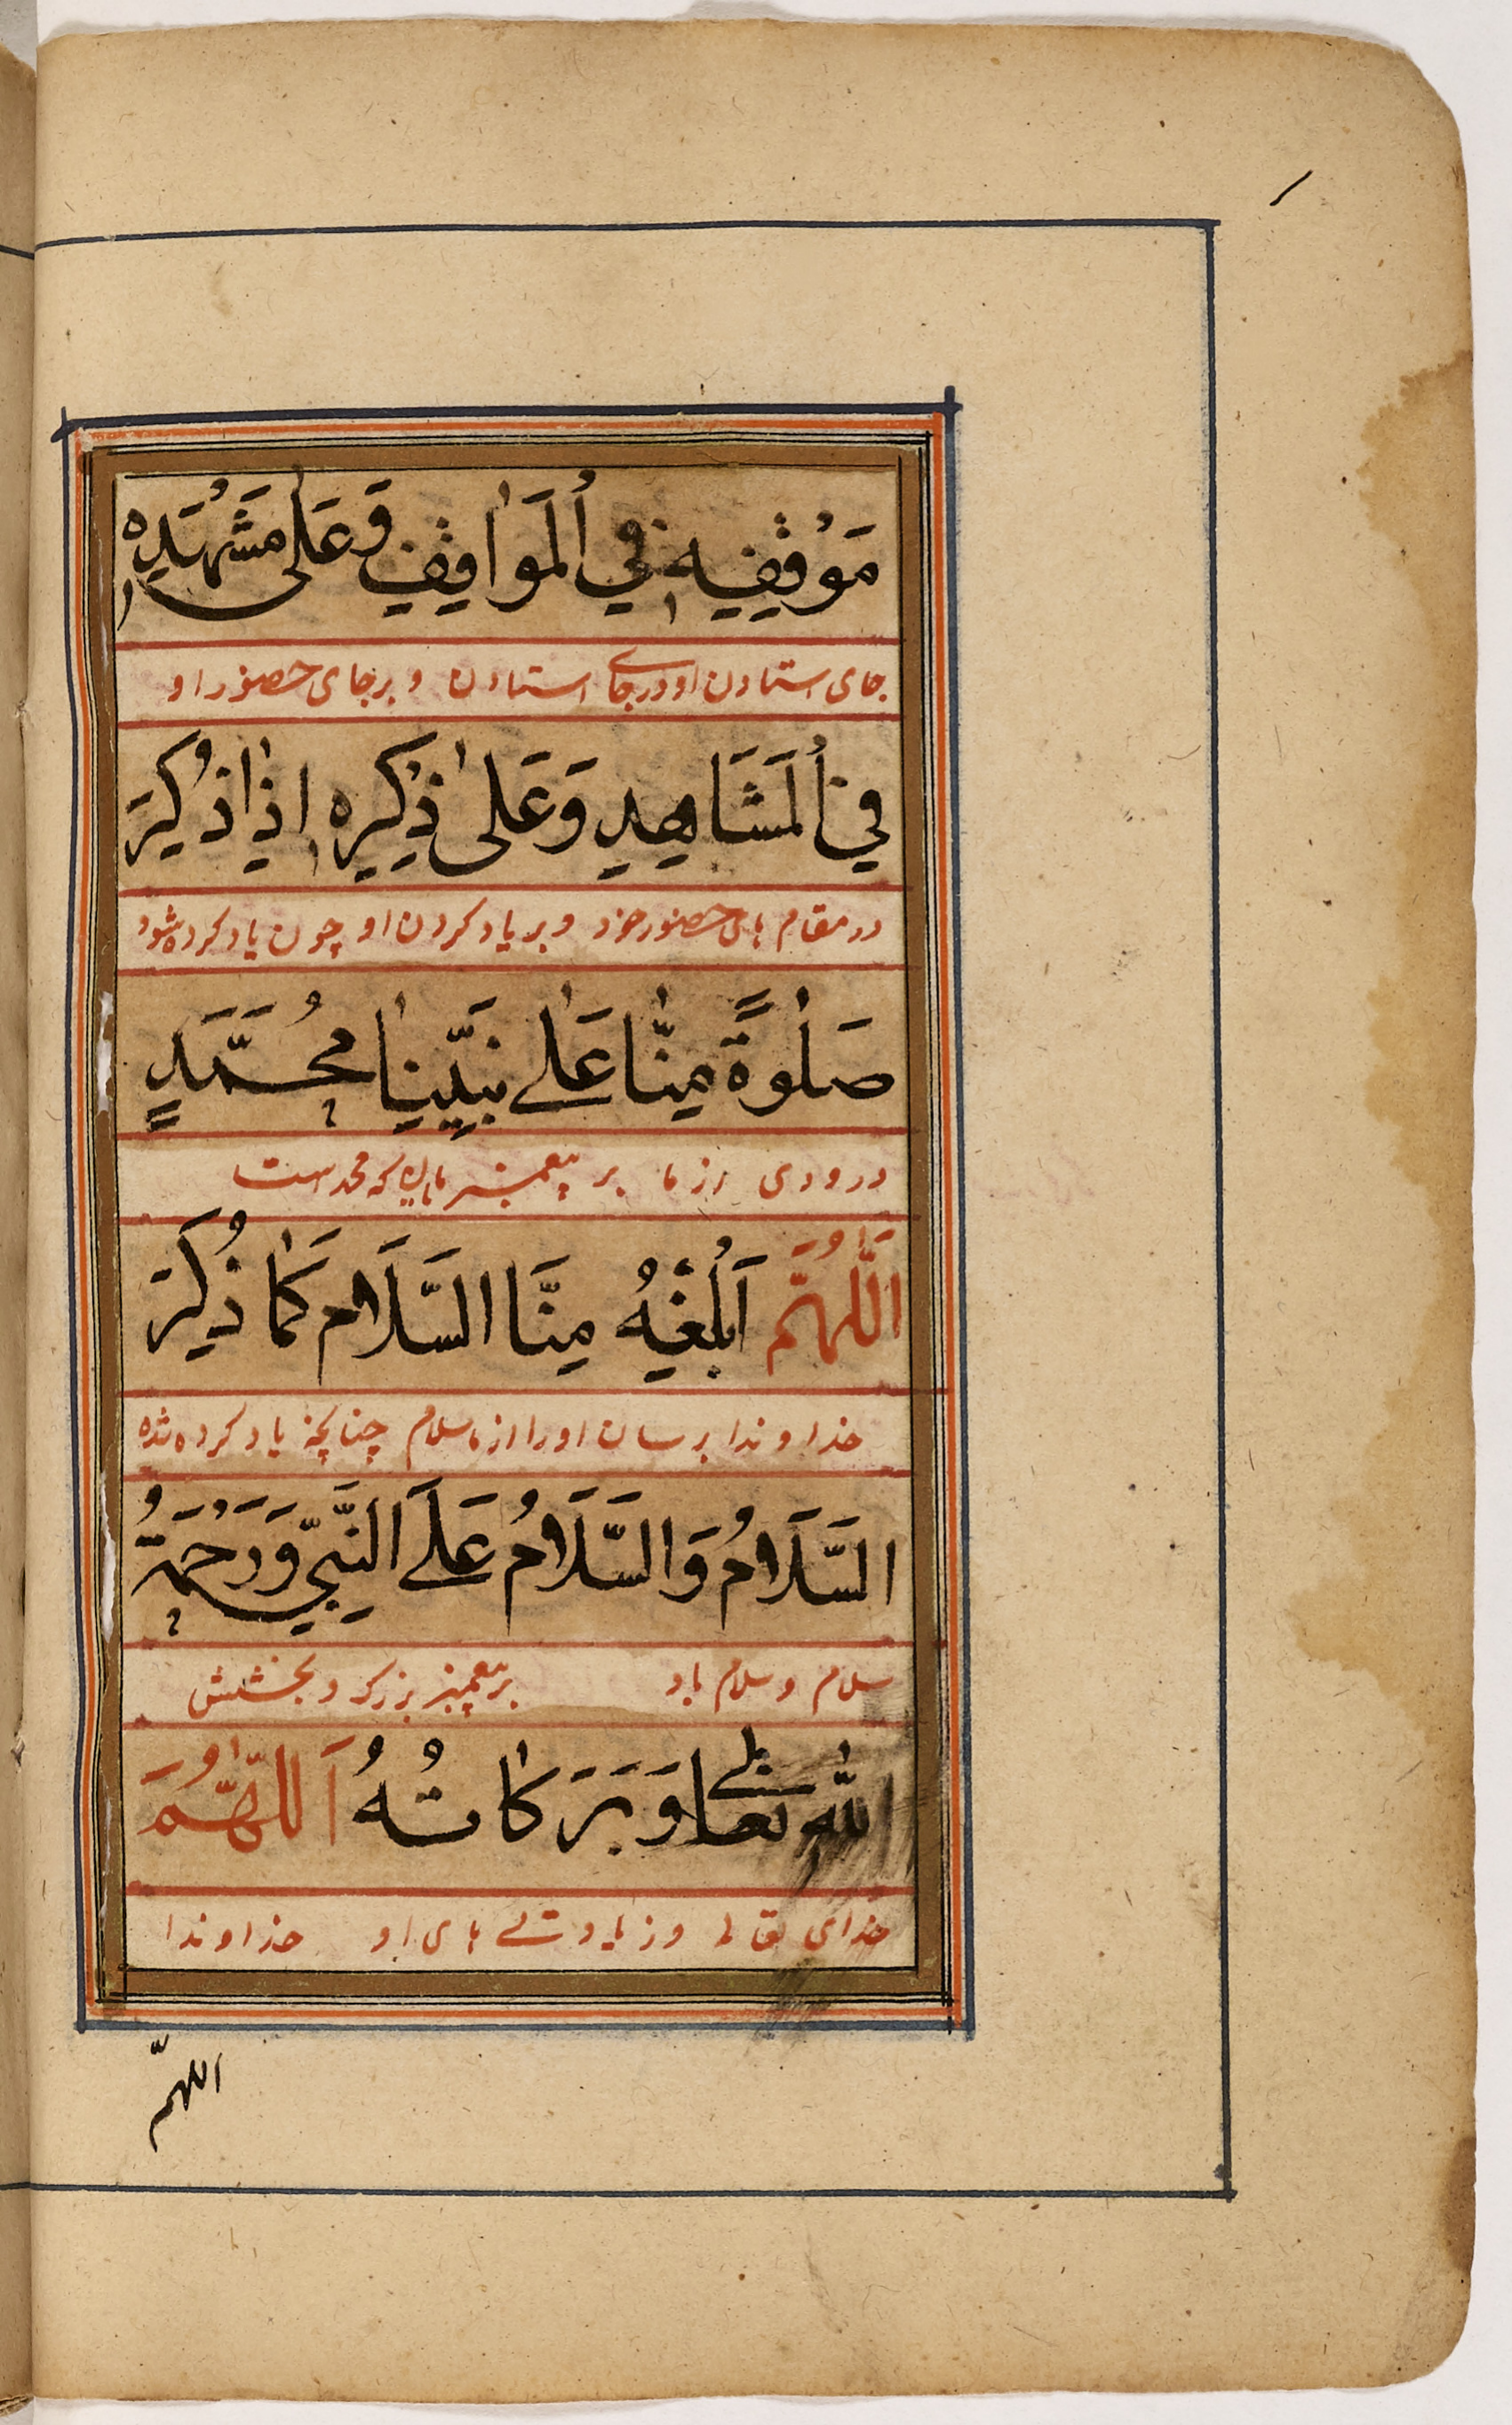 مَوْقِفِهِ فِي الْمَوَاقِفِ وَعَلٰى مَشْهَدِهِ
جای استادن او در جای استادن و بر جای حضور او
فِي الْمَشَاهِدِ وَعَلٰى ذِكْرِهِ اِذَا ذُكِرَ
در مقام های حضور خود و بر یاد کردن او چون یاد کرده شود
صَلٰوةً مِنَّا عَلٰى نَبِيِّنَا مُحَمَّدٍ
درودی از ما بر پیغمبر ما که محمد است
اَللّٰهُمَّ اَبْلِغْهُ مِنَّا السَّلَامَ كَمَا ذُكِرَ
خداوندا برسان او را از ما سلام چنانچه یاد کرده شده
السَّلَامُ وَالسَّلَامُ عَلَى النَّبِيِّ وَرَحْمَةُ
سلام و سلام باد بر پیغمبر بزرک و بخشش
اللهِ تَعَالٰى وَبَرَكَاتُهُ اَللّٰهُمَّ
خدای تعالی و زیادتی های او خداوندا
اللهمّ